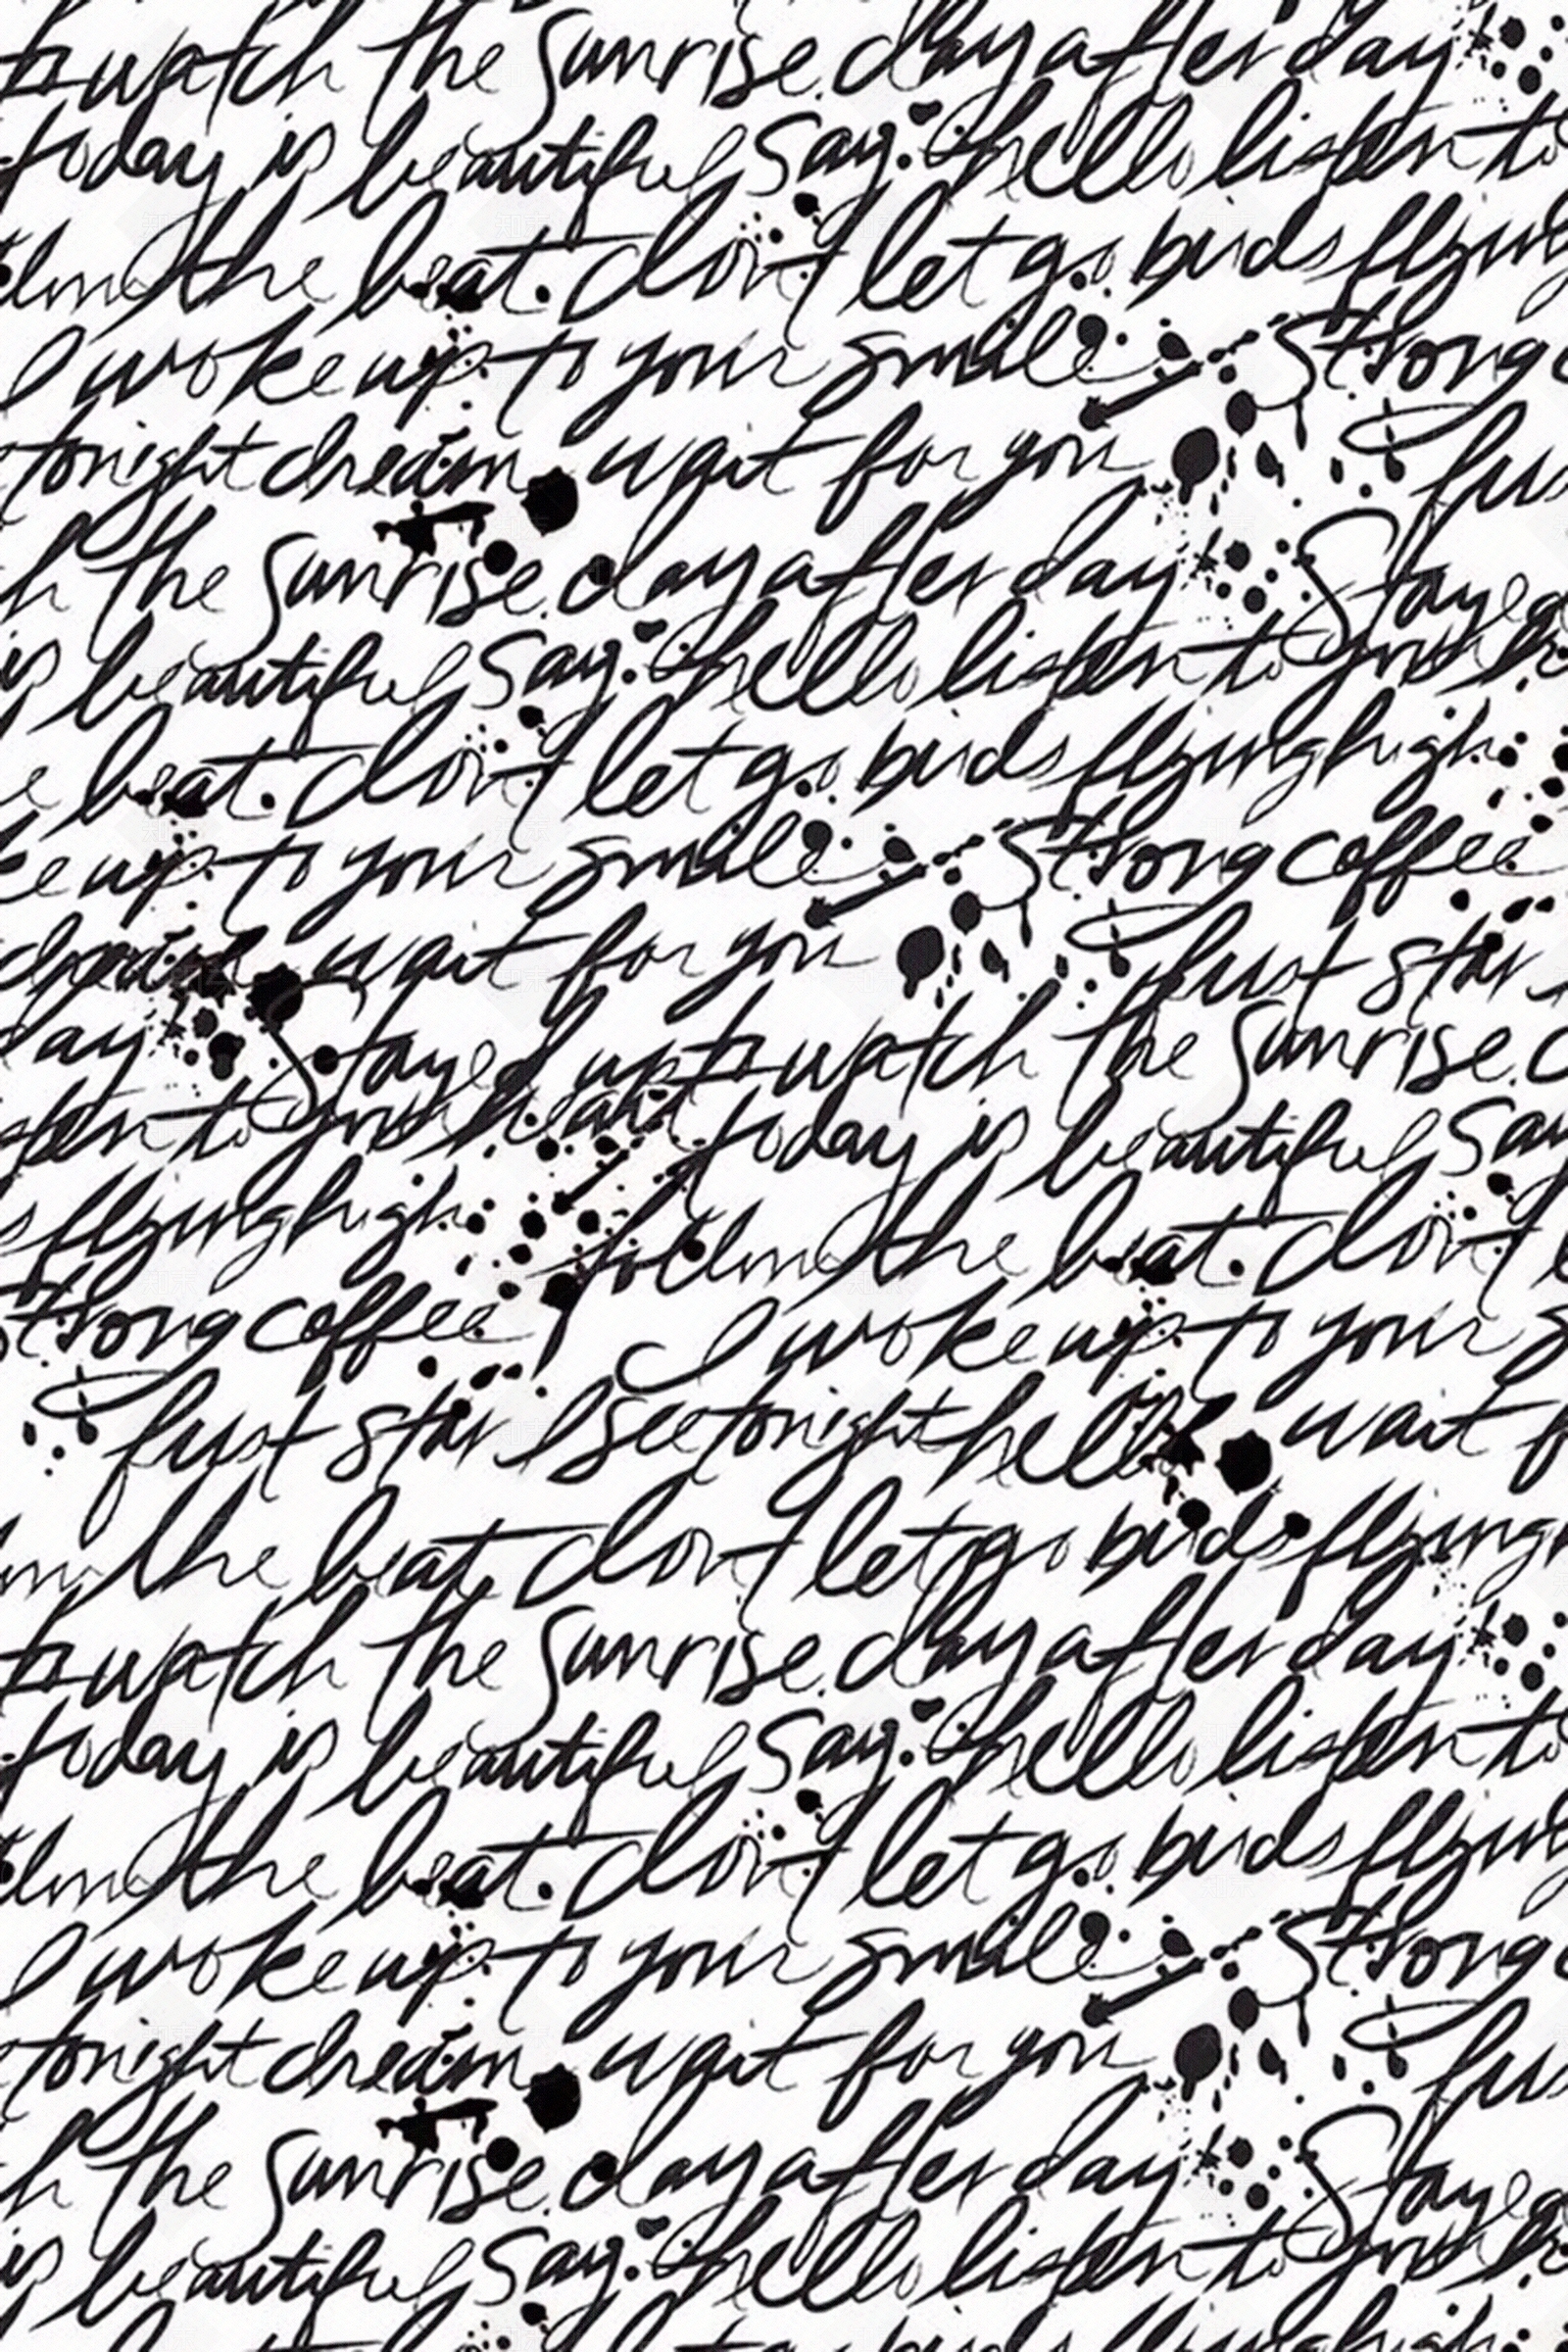 to watch the Sunrise. day after day
today is beautiful Say: hello listen to
the beat. don't let go birds flying
I woke up to your smile Strong
tonight dream wait for you
the Sunrise. day after day Stayed
is beautiful Say: hello listen to your
beat. don't let go birds flying high
up to your smile Strong coffee
dream wait for you first star
day Stayed up to watch the Sunrise.
listen to your heart today is beautiful Say
flying high follow the beat. don't
Strong coffee I woke up to your
first star I see tonight hello wait
the beat don't let go birds flying
to watch the Sunrise. day after day
today is beautiful Say: hello listen to
the beat. don't let go birds flying
I woke up to your smile Strong
tonight dream wait for you
the Sunrise. day after day Stayed
is beautiful Say: hello listen to your